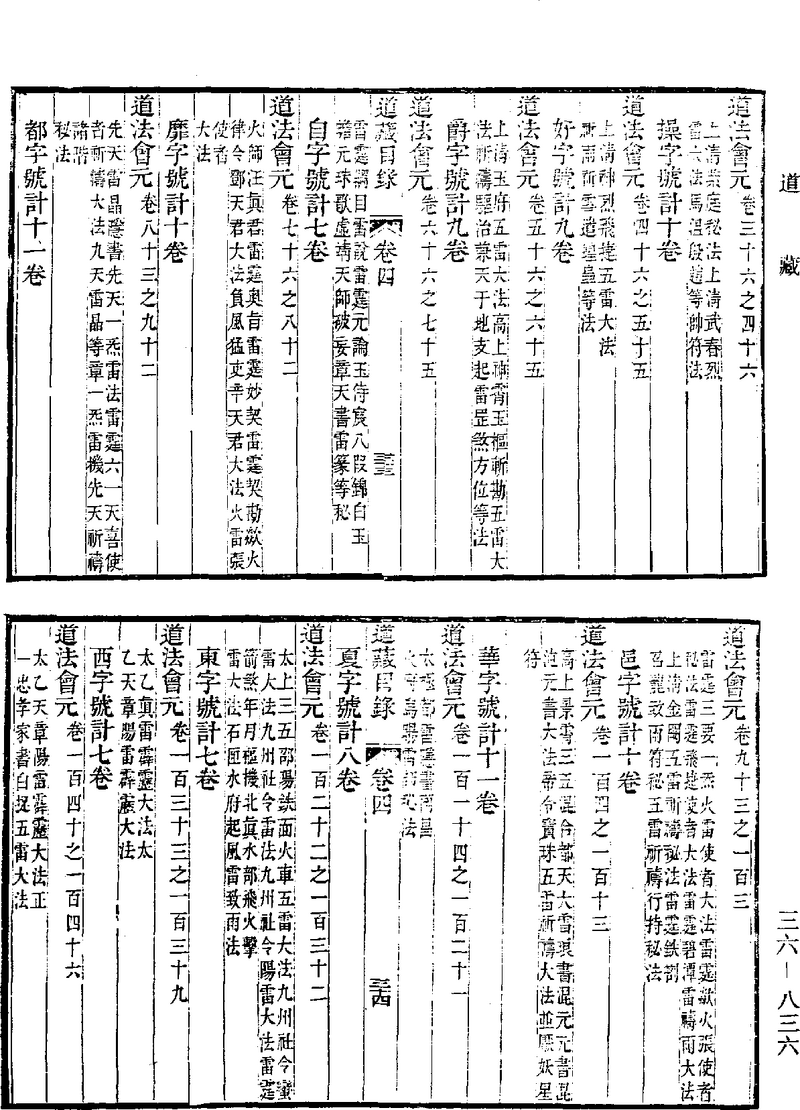 道藏
道法會元卷三十六之四十六
上清紫庭秘法上清武春烈
雷大法馬溫殷趙等帥符法
操字號計十卷
道法會元卷四十六之五十五
上清神烈飛捷五雷大法
祈雨祈雪遣蝗蟲等法
好字號計九卷
道法會元卷五十六之六十五
上清玉府五雷大法高上神霄玉樞斬勘五雷大
法祈禱驅治兼天于地支起雷罡煞方位等法
爵字號計九卷
道法會元卷六十六之七十五
道藏目錄 卷四 三十三
雷霆綱目雷說雷霆元論玉侍宸八段錦白玉
蟾元珠歌虛靖天師破妄章天書雷篆等秘
自字號計七卷
道法會元卷七十六之八十二
火師汪眞君雷霆奧旨雷霆妙契雷霆契勅歘火
律令鄧天君大法負風猛吏辛天君大法火雷張
使者
大法
靡字號計十卷
道法會元卷八十三之九十二
先天雷晶隱書先天一炁雷法雷霆六一天喜使
者祈禱大法九天雷晶等章一炁雷機先天祈禱
諸階
秘法
都字號計十一卷
道法會元卷九十三之一百三
雷霆三要一炁火雷使者大法雷霆歘火張使者
秘法雷霆飛捷使者大法雷霆碧潭雷禱雨大法
上清金闕五雷祈禱秘法雷霆鉄劄
召龍致雨符秘五雷祈禱行持秘法
邑字號計十卷
道法會元卷一百四之一百十三
高上景霄三五混合都天大雷琅書混元元書混
范元書大法帝令寶珠五雷祈禱大法並驅妖星
符
華字號計十一卷
道法會元卷一百一十四之一百二十一
太極都雷隱書南昌
道藏目錄 卷四 三十四
夏字號計八卷
道法會元卷一百二十二之一百三十二
太上三五邵陽鉄面火車五雷大法九州社令蠻
雷大法九州社令雷法九州社令陽雷大法雷霆
箭煞年月樞機北眞水部飛火擊
雷大法石匣水府起風雷致雨法
東字號計七卷
道法會元卷一百三十三之一百三十九
太乙眞雷霹靂大法太
乙天章陽雷霹靂大法
西字號計七卷
道法會元卷一百四十之一百四十六
太乙天章陽雷霹靂大法正
一忠孝家書白捉五雷大法
三六—八三六